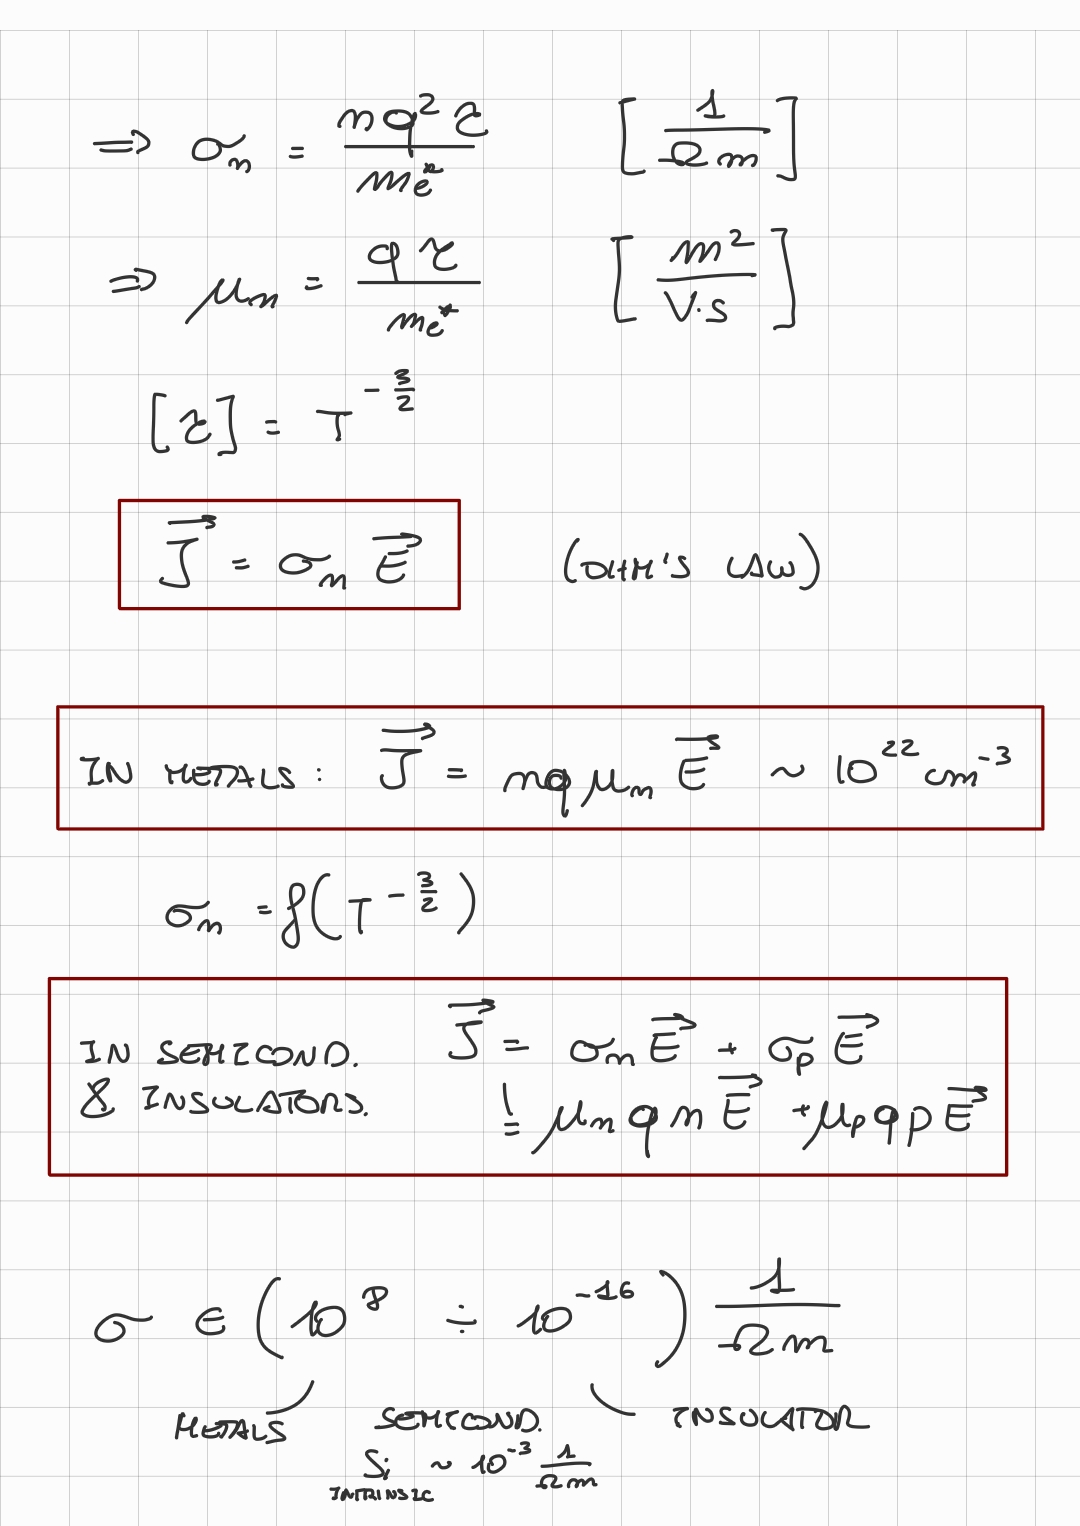 ⇒ σn = nq²τ / me* [1 / Ωm]
⇒ μn = qτ / me* [m² / V·s]
[τ] = T^(-3/2)
J⃗ = σn E⃗ (OHM'S LAW)
IN METALS: J⃗ = nqμn E⃗ ~ 10²² cm⁻³
σn = f(T^(-3/2))
IN SEMICOND. J⃗ = σn E⃗ + σp E⃗
& INSULATORS. != μn q n E⃗ + μp q p E⃗
σ ∈ (10⁸ ÷ 10⁻¹⁶) 1 / Ωm
METALS SEMICOND. INSULATOR
Si ~ 10⁻³ 1 / Ωm
INTRINSIC